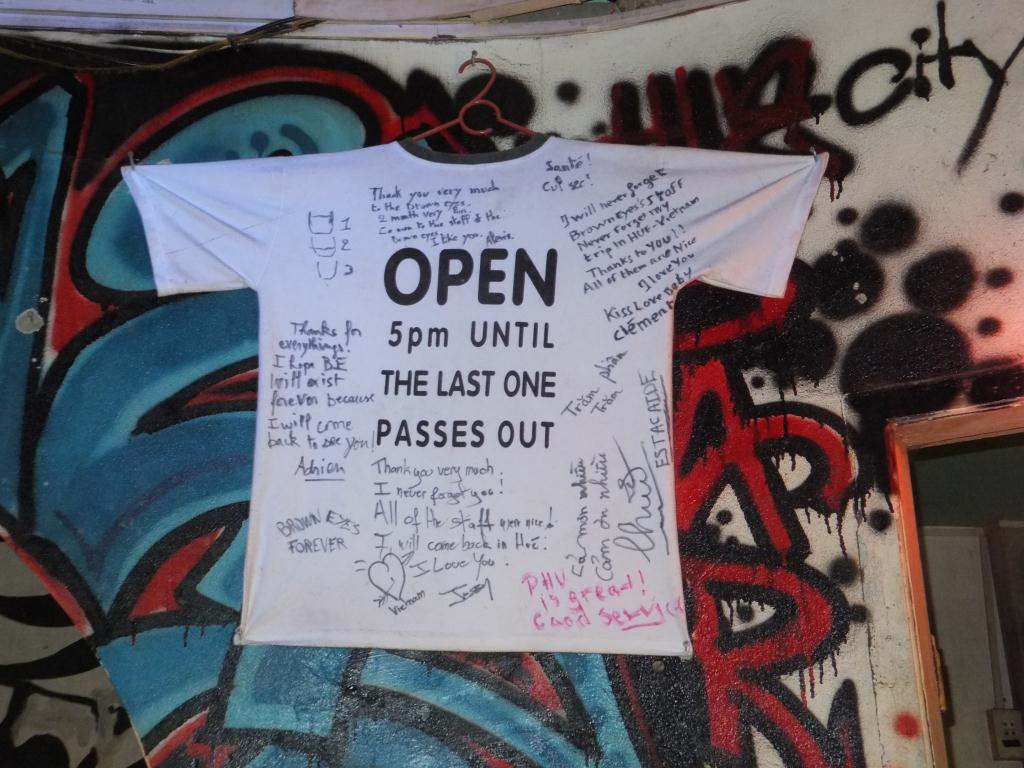 HUE city
Santé!
Thank you very much
to the Brown eyes.
2 month very fun.
to the staff of the
Brown eyes. I like you. Alexis.
1
2
3
I will never forget
Brown eyes's staff
Never forget my
trip in HUE-Vietnam
Thanks to You!!
All of them are Nice
I love You
Kiss Love Baby
Clément
OPEN
5pm UNTIL
THE LAST ONE
PASSES OUT
Thanks for
everythings!
I hope BE
will exist
forever because
I will come
back to see you!
Adrien
BROWN EYES
FOREVER
Trăm phần
Trăm phần
ESTACAIDE
Thank you very much.
I never forget you!
All of the staff were nice!
I will come back in Hué.
I Love You.
Vietnam
Cảm ơn nhiều
PHU
is great!
Good service